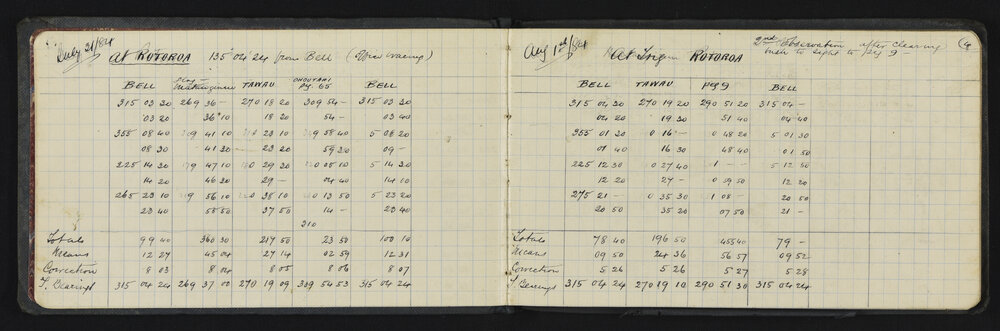 July 31/84
At ROTOROA 135 04 24 from Bell
BELL TAWAU PG. 65 BELL
315 03 20 269 36 – 270 18 20 309 54 – 315 03 30
03 20 36 10 18 20 54 – 03 40
355 08 40 41 10 23 10 58 40 5 08 20
08 30 41 30 23 20 59 20 09 –
225 14 30 47 10 29 30 05 10 5 14 20
14 20 46 30 29 – 04 40 14 10
265 23 10 56 10 38 10 13 50 5 23 20
23 40 55 50 37 50 14 – 23 40
310
Totals 99 40 360 30 217 50 23 50 100 10
Means 12 27 45 04 27 14 02 59 12 31
Correction 8 03 8 04 8 05 8 06 8 07
T. Bearings 315 04 24 269 37 00 270 19 09 309 54 53 315 04 24
Aug 1st/84
At Trig ROTOROA
2nd Observation after clearing
bush to sight to peg 9 –
9
BELL TAWAU Peg 9 BELL
315 04 30 270 19 20 290 51 20 315 04 –
04 20 19 30 51 40 04 40
355 01 30 0 16 – 0 48 20 5 01 30
01 40 16 30 48 40 01 50
225 12 30 0 27 40 1 – – 5 12 50
12 20 27 – 0 59 50 12 20
275 21 – 0 35 30 1 08 – 20 50
20 50 35 20 07 50 21 –
Totals 78 40 196 50 455 40 79 –
Means 09 50 24 36 56 57 09 52
Correction 5 26 5 26 5 27 5 28
T Bearings 315 04 24 270 19 10 290 51 30 315 04 24